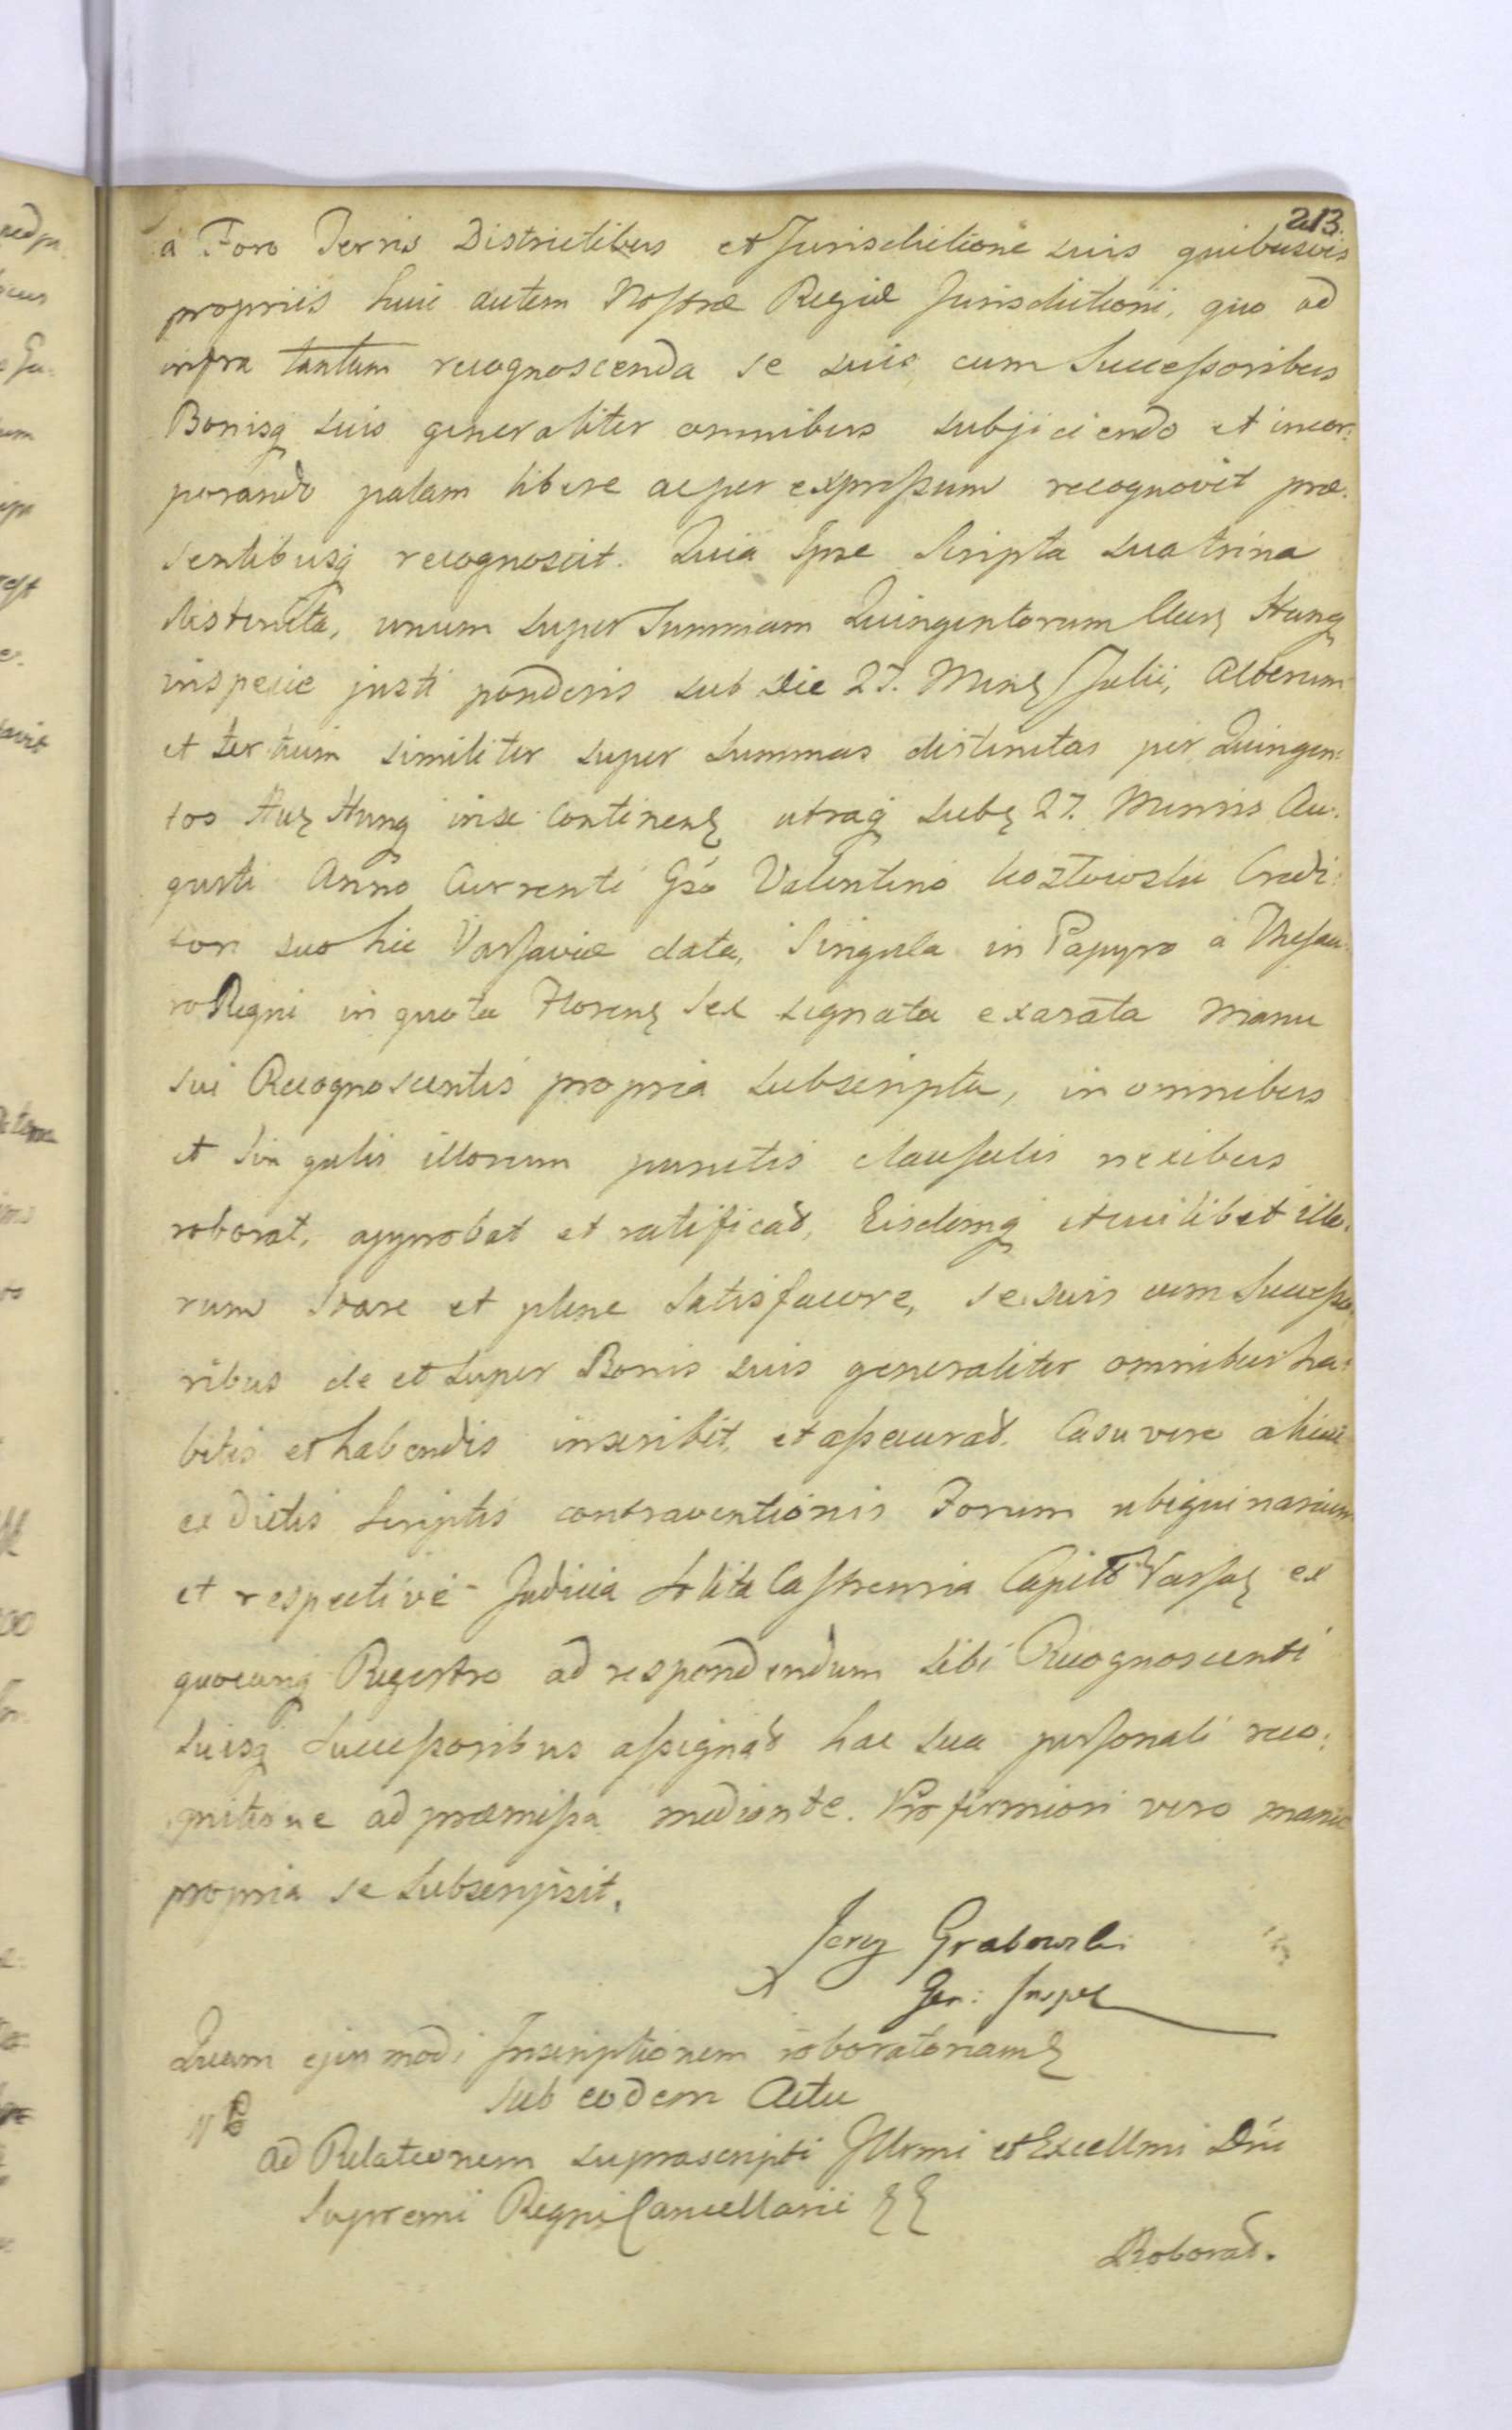 213.
a Foro Terris Districtibus et Jurisdictione suis quibusvis
propriis huic autem Nostræ Regiæ Jurisdictioni, quo ad
infra tantum recognoscenda se suis cum Successoribus
Bonisq suis generaliter omnibus subjiciendo et incor:
porando palam libere ac per expressum recognovit præ:
sentibusq recognoscit. Quia Ipse Scripta sua trina
distincta, unum super Summam Quingentorum Aur Hung
in specie justi ponderis sub die 27. Mens Julii, Alterum
et tertium similiter super summas distinctas per Quingen:
tos Aur Hung in se continen utraq sub 27. Mensis Au:
gusti Anno Currenti Gso Valentino Kozłowski Credi:
tori suo hic Varsaviæ data, Singula in Papyro a Thesau:
ro Regni in quota Floren Sex signata exarata manu
sui Recognoscentis propria subscripta, in omnibus
et singulis illorum punctis clausulis nexibus
roborat, approbat et ratificat, Eisdemq et cuilibet illo:
rum stare et plene satisfacere, se suis cum Successo:
ribus de et super Bonis suis generaliter omnibus ha:
bitis et habendis inscribit et assecurat. Casu vero alicuj
ex dictis Scriptis contraventionis Forum ubiquinarium
et respective Judicia solita Castrensia Capit Varsav ex
quocunq Regestro ad respondendum sibi Recognoscenti
suisq Successoribus assignat hac sua personali reco:
gnitione ad præmissa mediante. Pro firmiori vero manu
propria se subscripsit.
Jerzy Grabowski
Gen: Insp
Quam ejusmodi Inscriptionem roboratoriam
sub eodem Actu
ad Relationem suprascripti Illrmi et Excellmi Dni
Supremi Regni Cancellarii
Roborat.